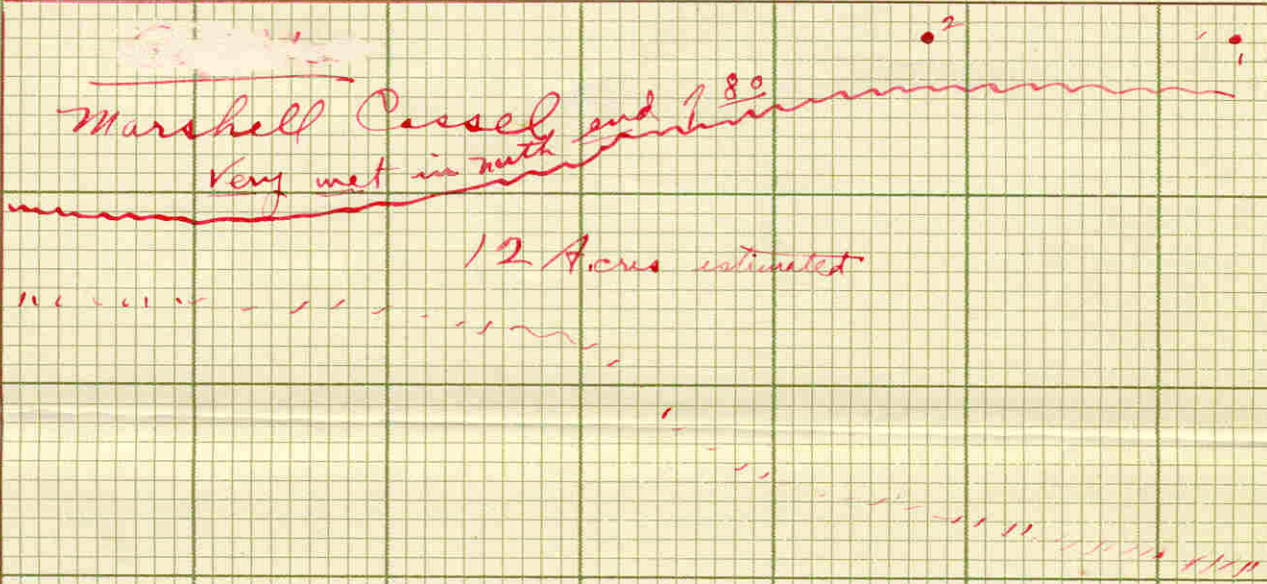 2
1
Marshell Cassel 1 80
Very wet in north end
12 Acres estimated